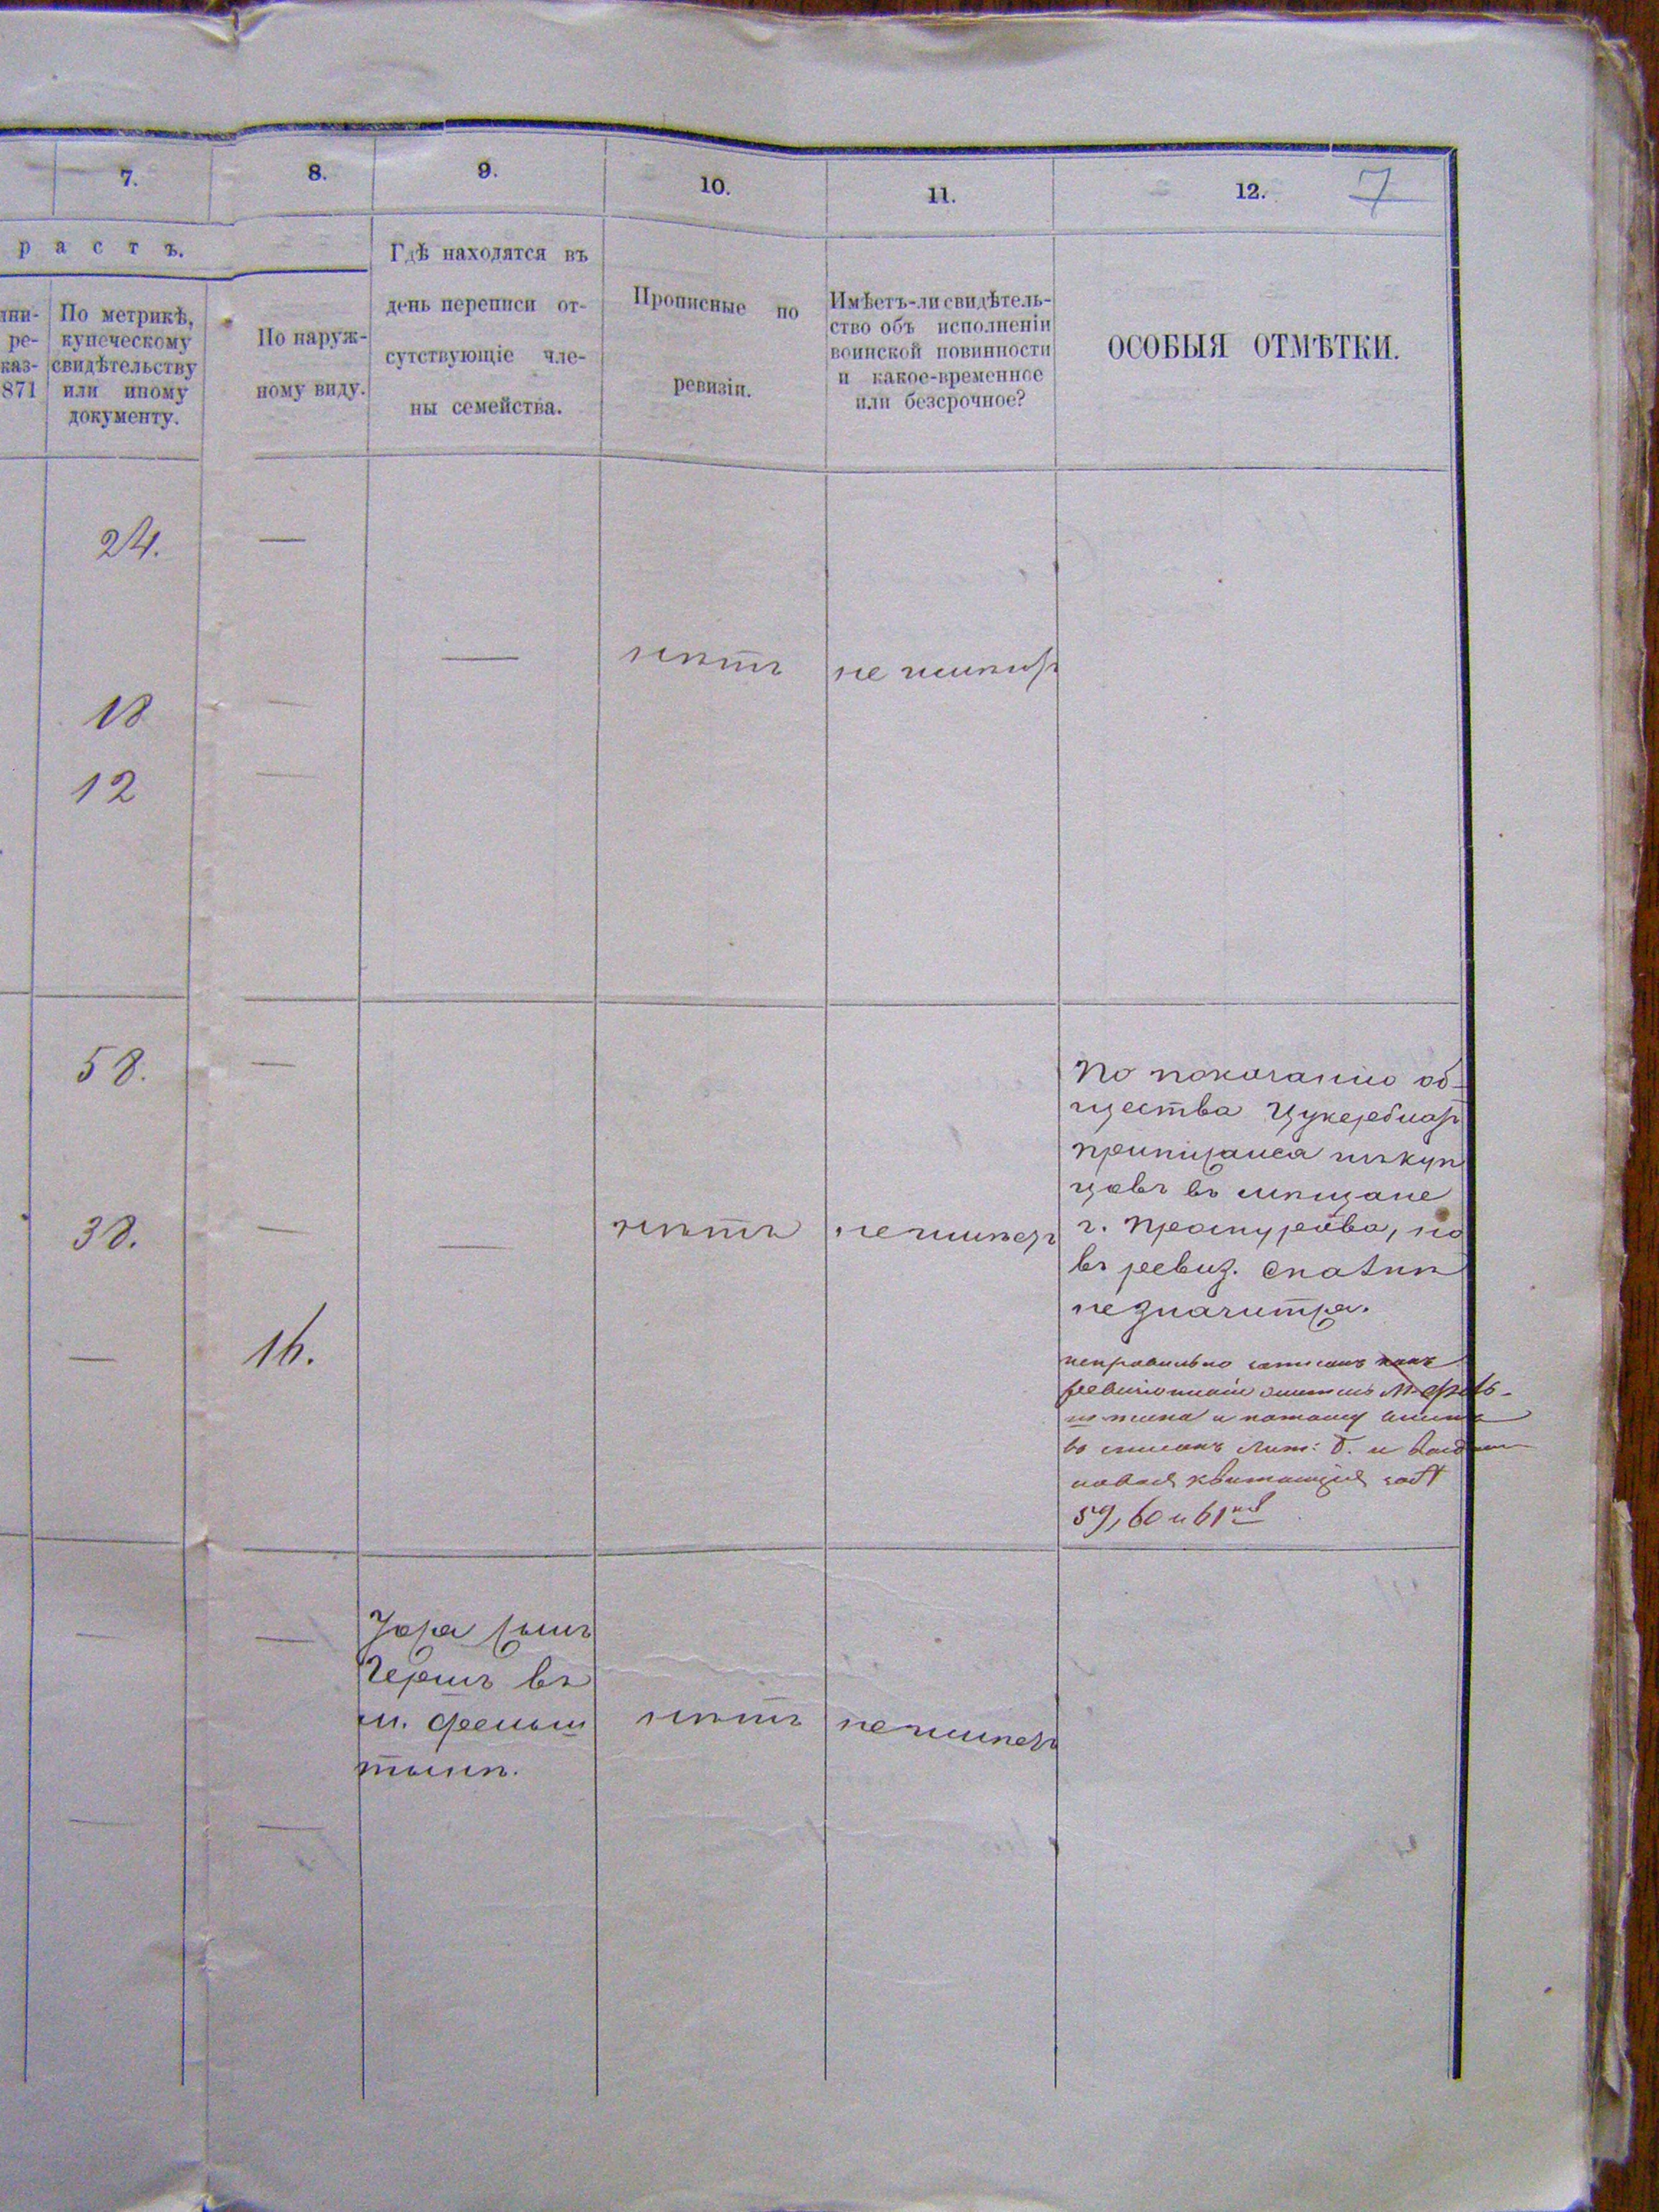 7. 8. 9. 10. 11. 12. 7
растъ.
ни-
ре-
каз-
871
По метрикѣ,
купеческому
свидѣтельству
или иному
документу.
По наруж-
ному виду.
Гдѣ находятся въ
день переписи от-
сутствующіе чле-
ны семейства.
Прописные по
ревизіи.
Имѣетъ-ли свидѣтель-
ство объ исполненіи
воинской повинности
и какое-временное
или безсрочное?
ОСОБЫЯ ОТМѢТКИ.
24. —
— нѣтъ не имѣетъ
18 —
12 —
58. —
38. — — нѣтъ не имѣетъ
— 16.
По показанію об-
щества Цукерблатъ
приписался изъ куп
цовъ въ мѣщане
г. Проскурова, но
въ ревиз. сказкѣ
не значится.
неправильно записанъ
и потому
въ списокъ Лит: б. и
новая квитанція за №
59, 60 и 61
— —
сынъ
Гершъ въ
м. Фельш
тынѣ.
нѣтъ не имѣетъ
— —